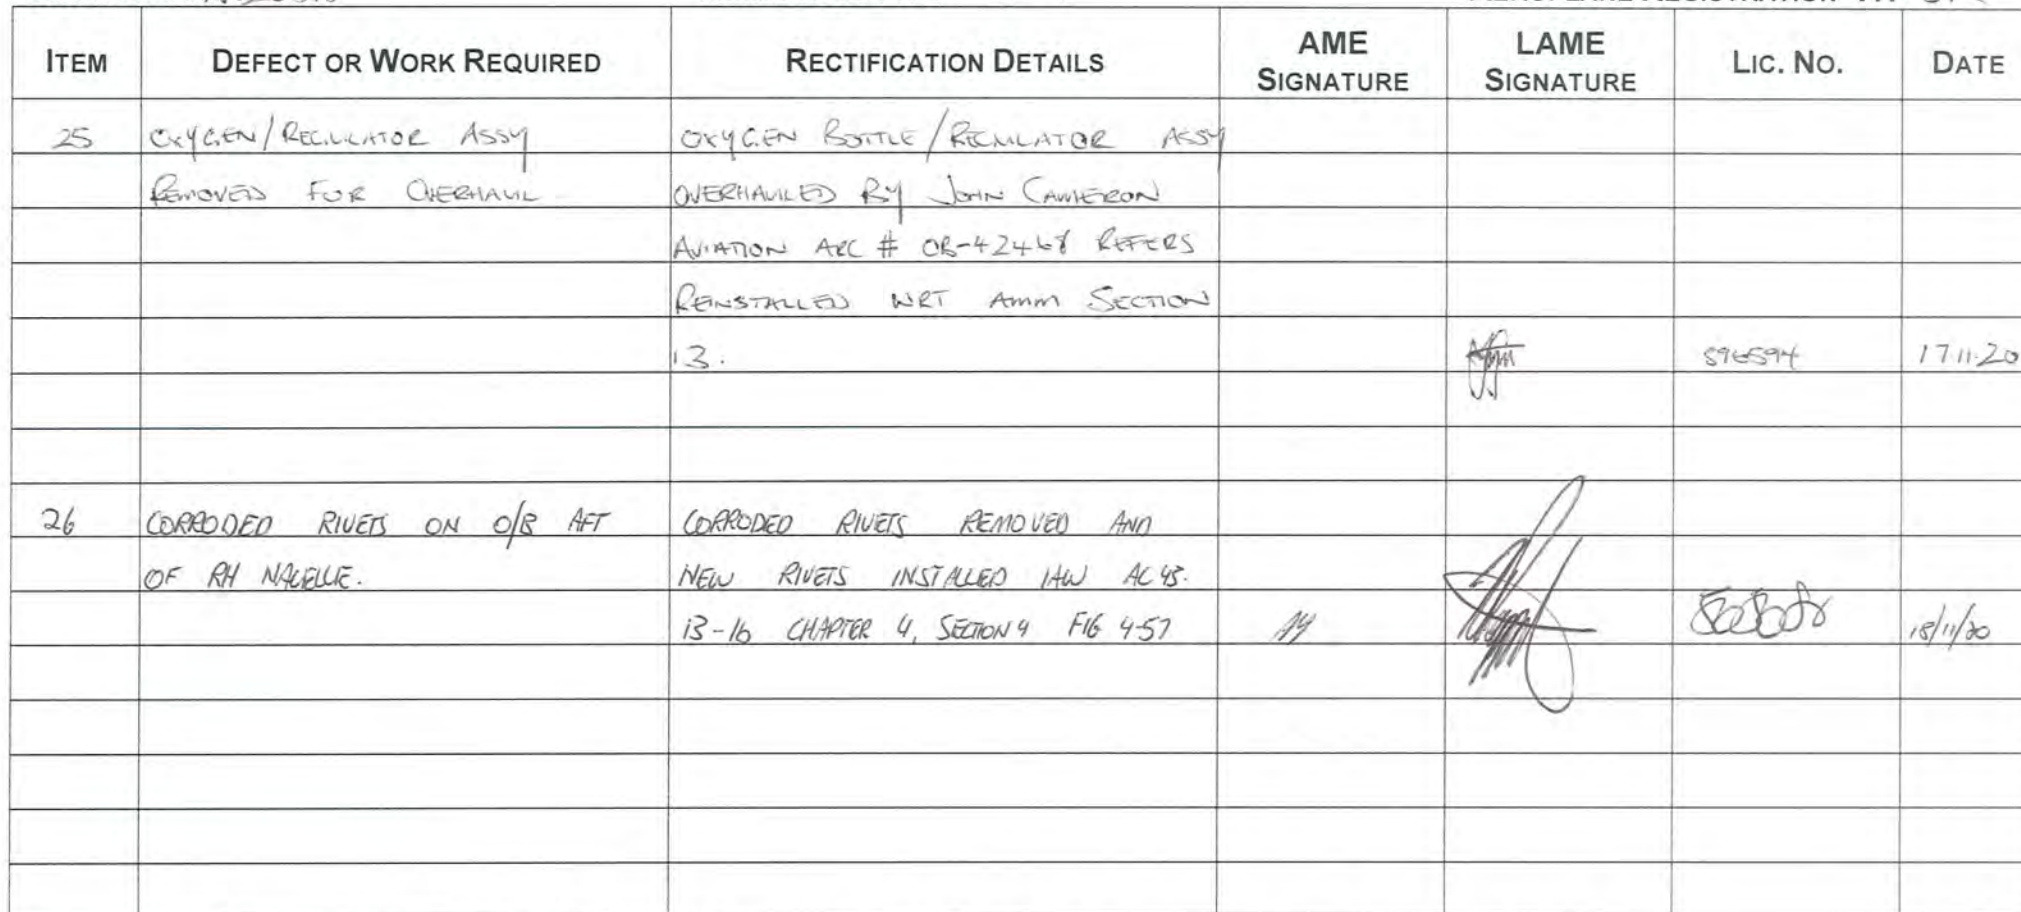 ITEM DEFECT OR WORK REQUIRED RECTIFICATION DETAILS AME SIGNATURE LAME SIGNATURE LIC. NO. DATE
25 OXYGEN/REGULATOR ASSY OXYGEN BOTTLE/REGULATOR ASSY
REMOVED FOR OVERHAUL OVERHAULED BY JOHN CAMERON
AVIATION ARC # OB-42468 REFERS
REINSTALLED WRT AMM SECTION
13. 596594 17.11.20
26 CORRODED RIVETS ON O/B AFT CORRODED RIVETS REMOVED AND
OF RH NACELLE. NEW RIVETS INSTALLED IAW AC 43.
13-1b CHAPTER 4, SECTION 4 FIG 4-57 18/11/20